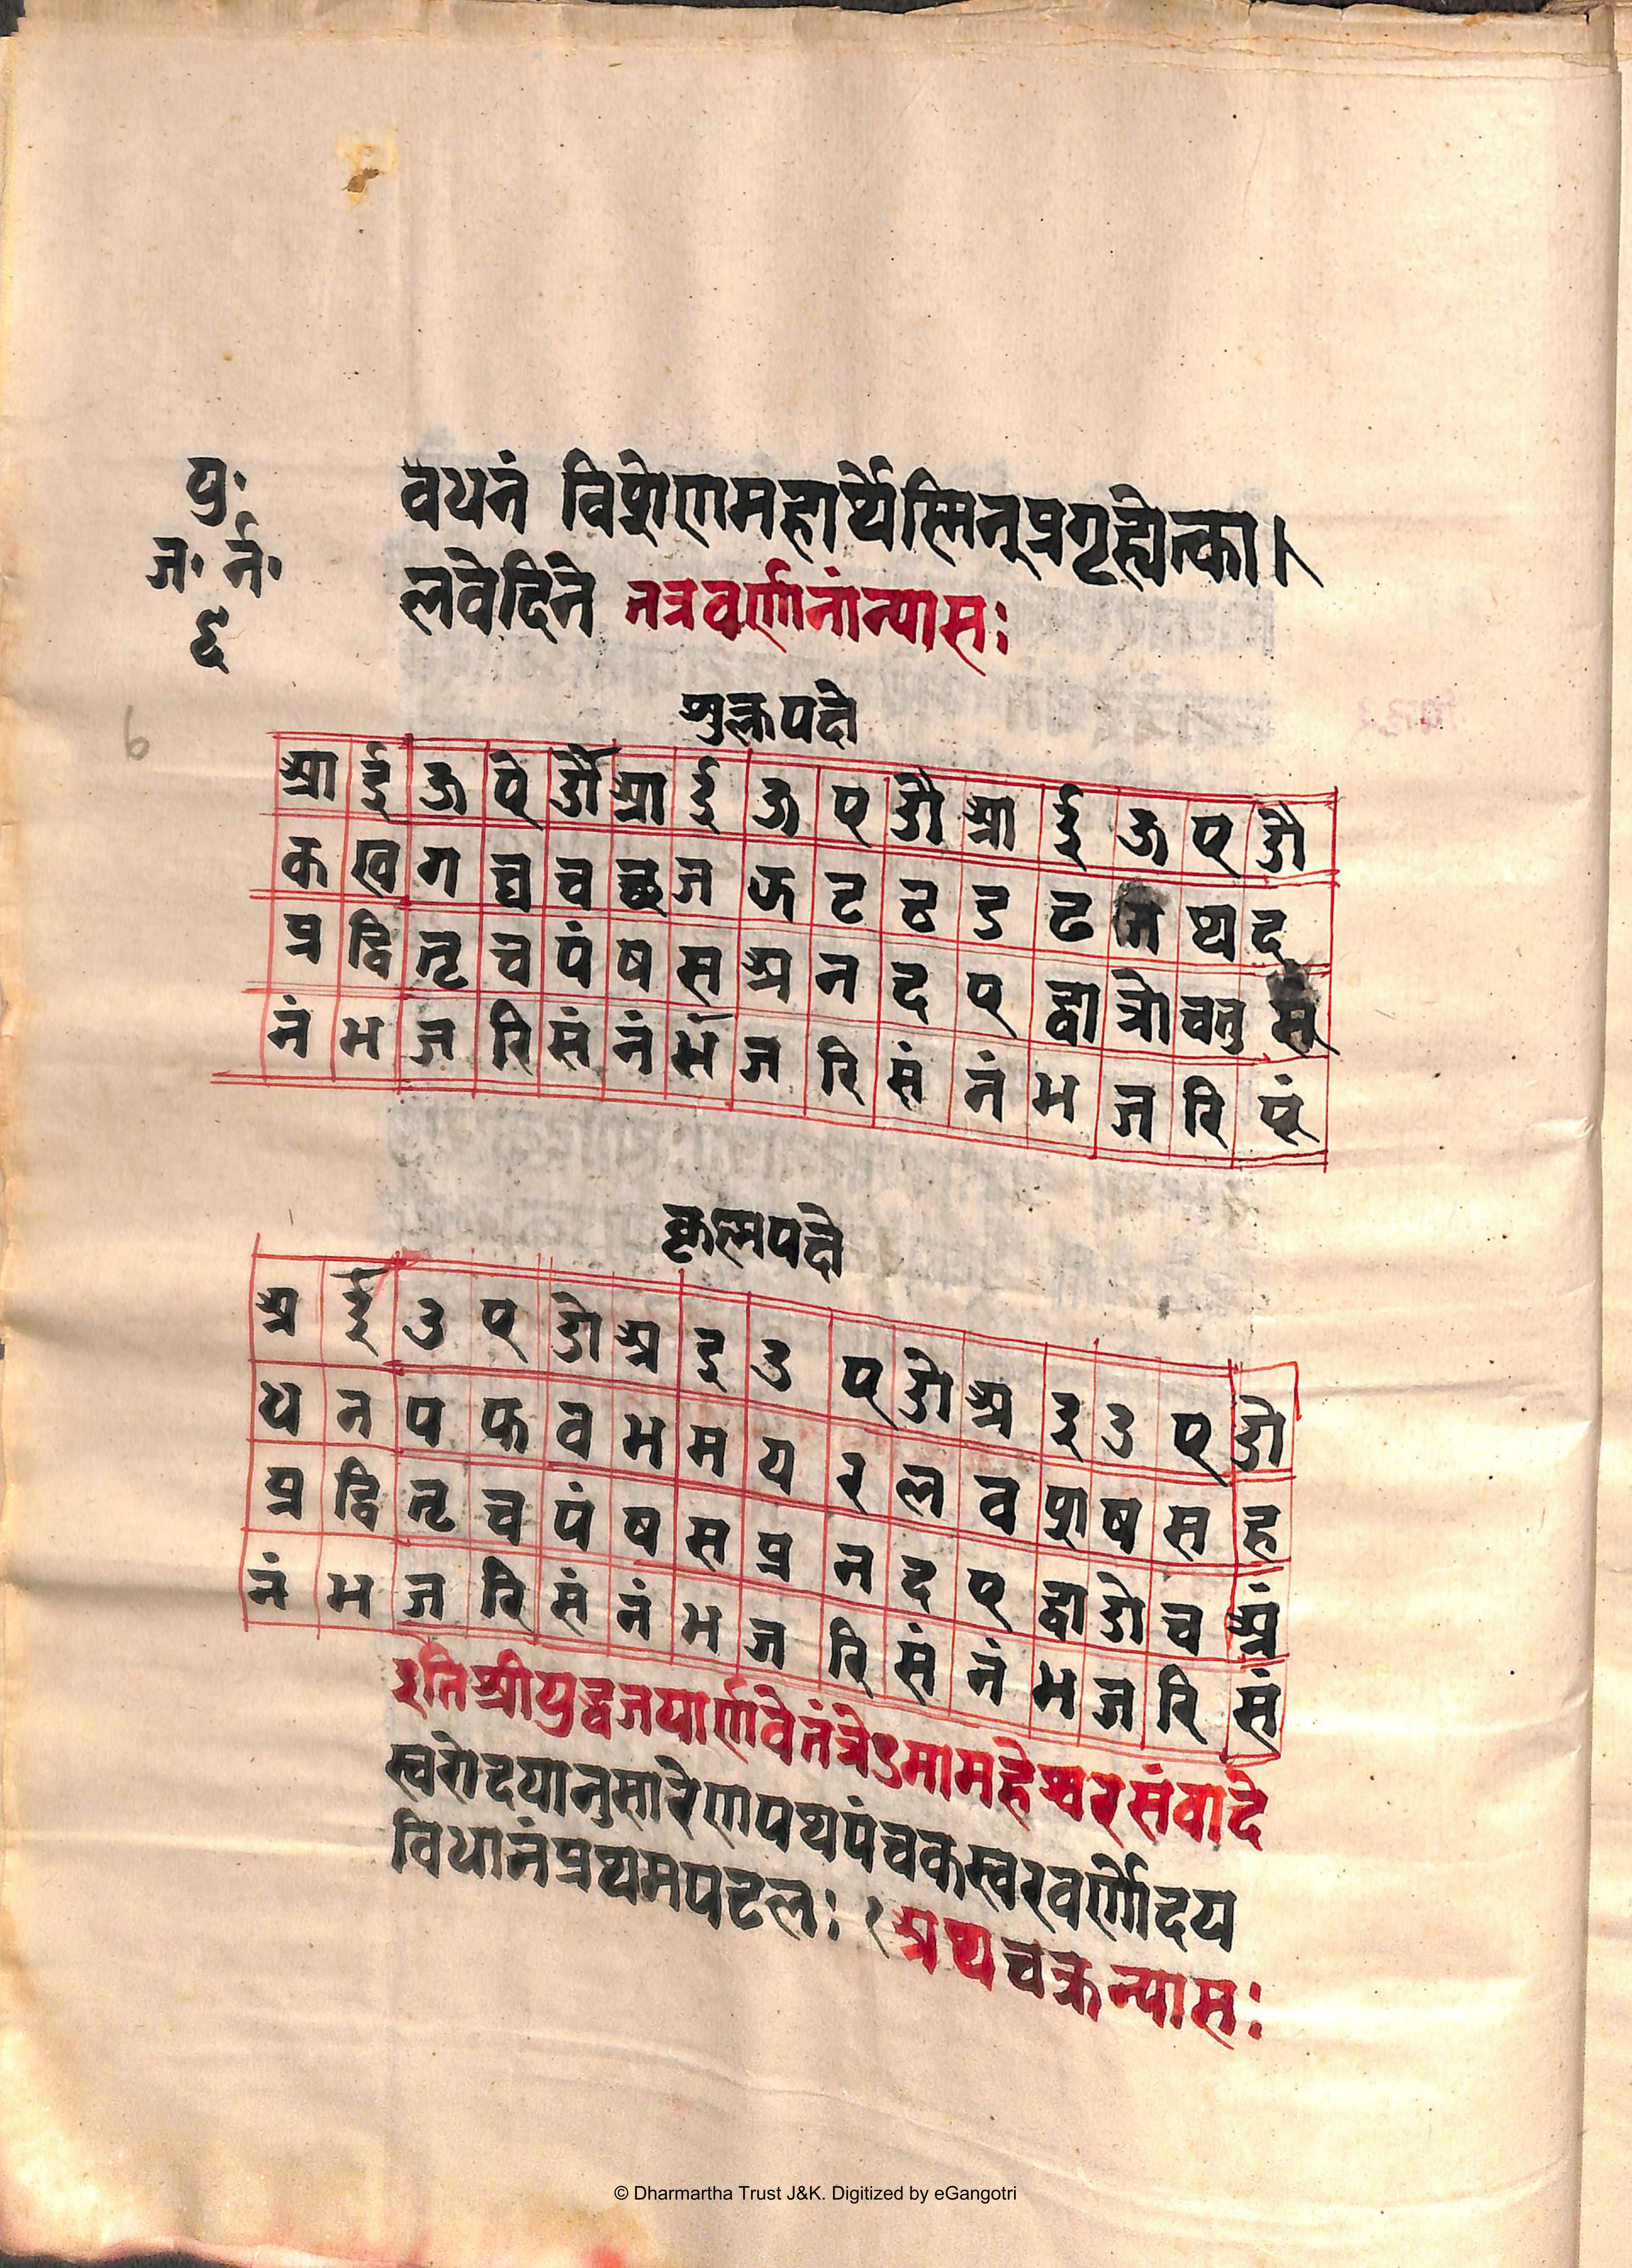 यु॰
ज॰ र्न॰
६
6
वधनं विशेषेणमहार्थेस्मिन्प्रगृह्येत्का।
लवेदिने तत्रवर्णानांन्यासः
शुक्लपक्षे
आ ई ऊ ऐ औ आ ई ऊ ऐ औ आ ई ऊ ऐ औ
क ख ग घ च छ ज झ ट ठ ड ढ त थ द
प्र द्वि तृ च पं ष स अ न द ए द्वा त्रो चतु
नं भ ज रि सं नं भ ज रि सं नं भ ज रि पूं
कृष्णपक्षे
अ ई उ ए ओ अ इ उ ए ओ अ इ उ ए ओ
ध न प फ व भ म य र ल व श ष स ह
प्र द्वि तृ च पं ष स प्र न द ए द्वा ओ च अं
नं भ ज रि सं नं भ ज रि सं नं भ ज रि सं
इतिश्रीयुद्धजयार्णवेतंत्रेऽमामहेश्वरसंवादे
स्वरोदयानुसारेणपथपंचकस्वरवर्णोदय
विधानंप्रथमपटलः १ अथचक्रन्यासः
© Dharmartha Trust J&K. Digitized by eGangotri